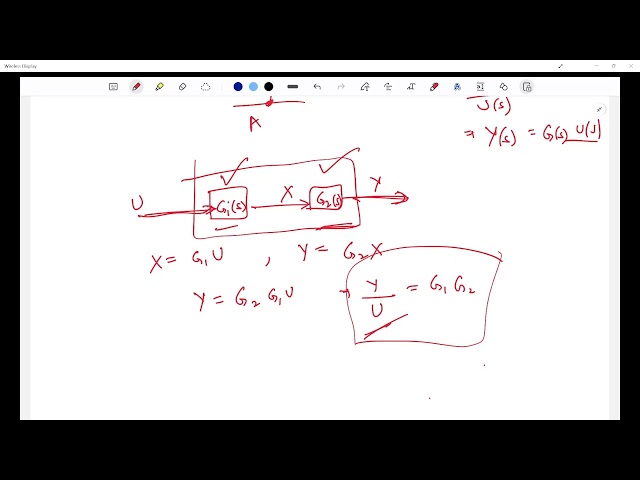 Wireless Display
A
U(s)
⇒ Y(s) = G(s) U(s)
U G1(s) X G2(s) Y
X = G1 U , Y = G2 X
Y = G2 G1 U → Y/U = G1 G2